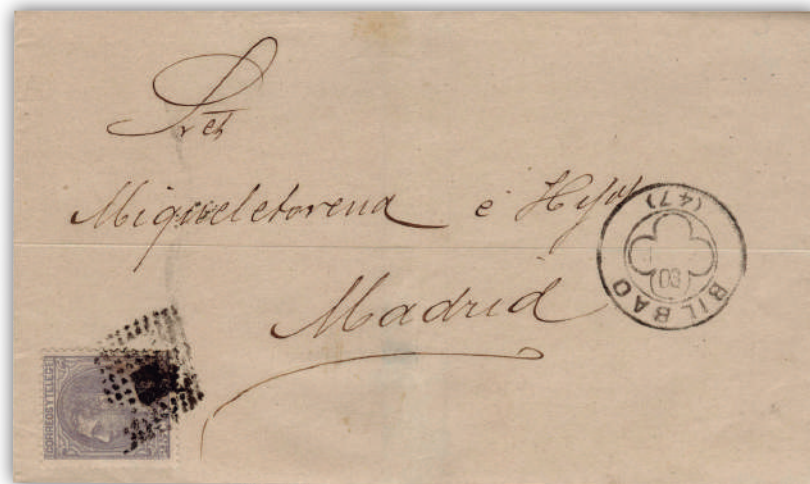 Sres
Miqueletorena e Hijos
Madrid
BILBAO
(47)
80
CORREOS Y TELEGS